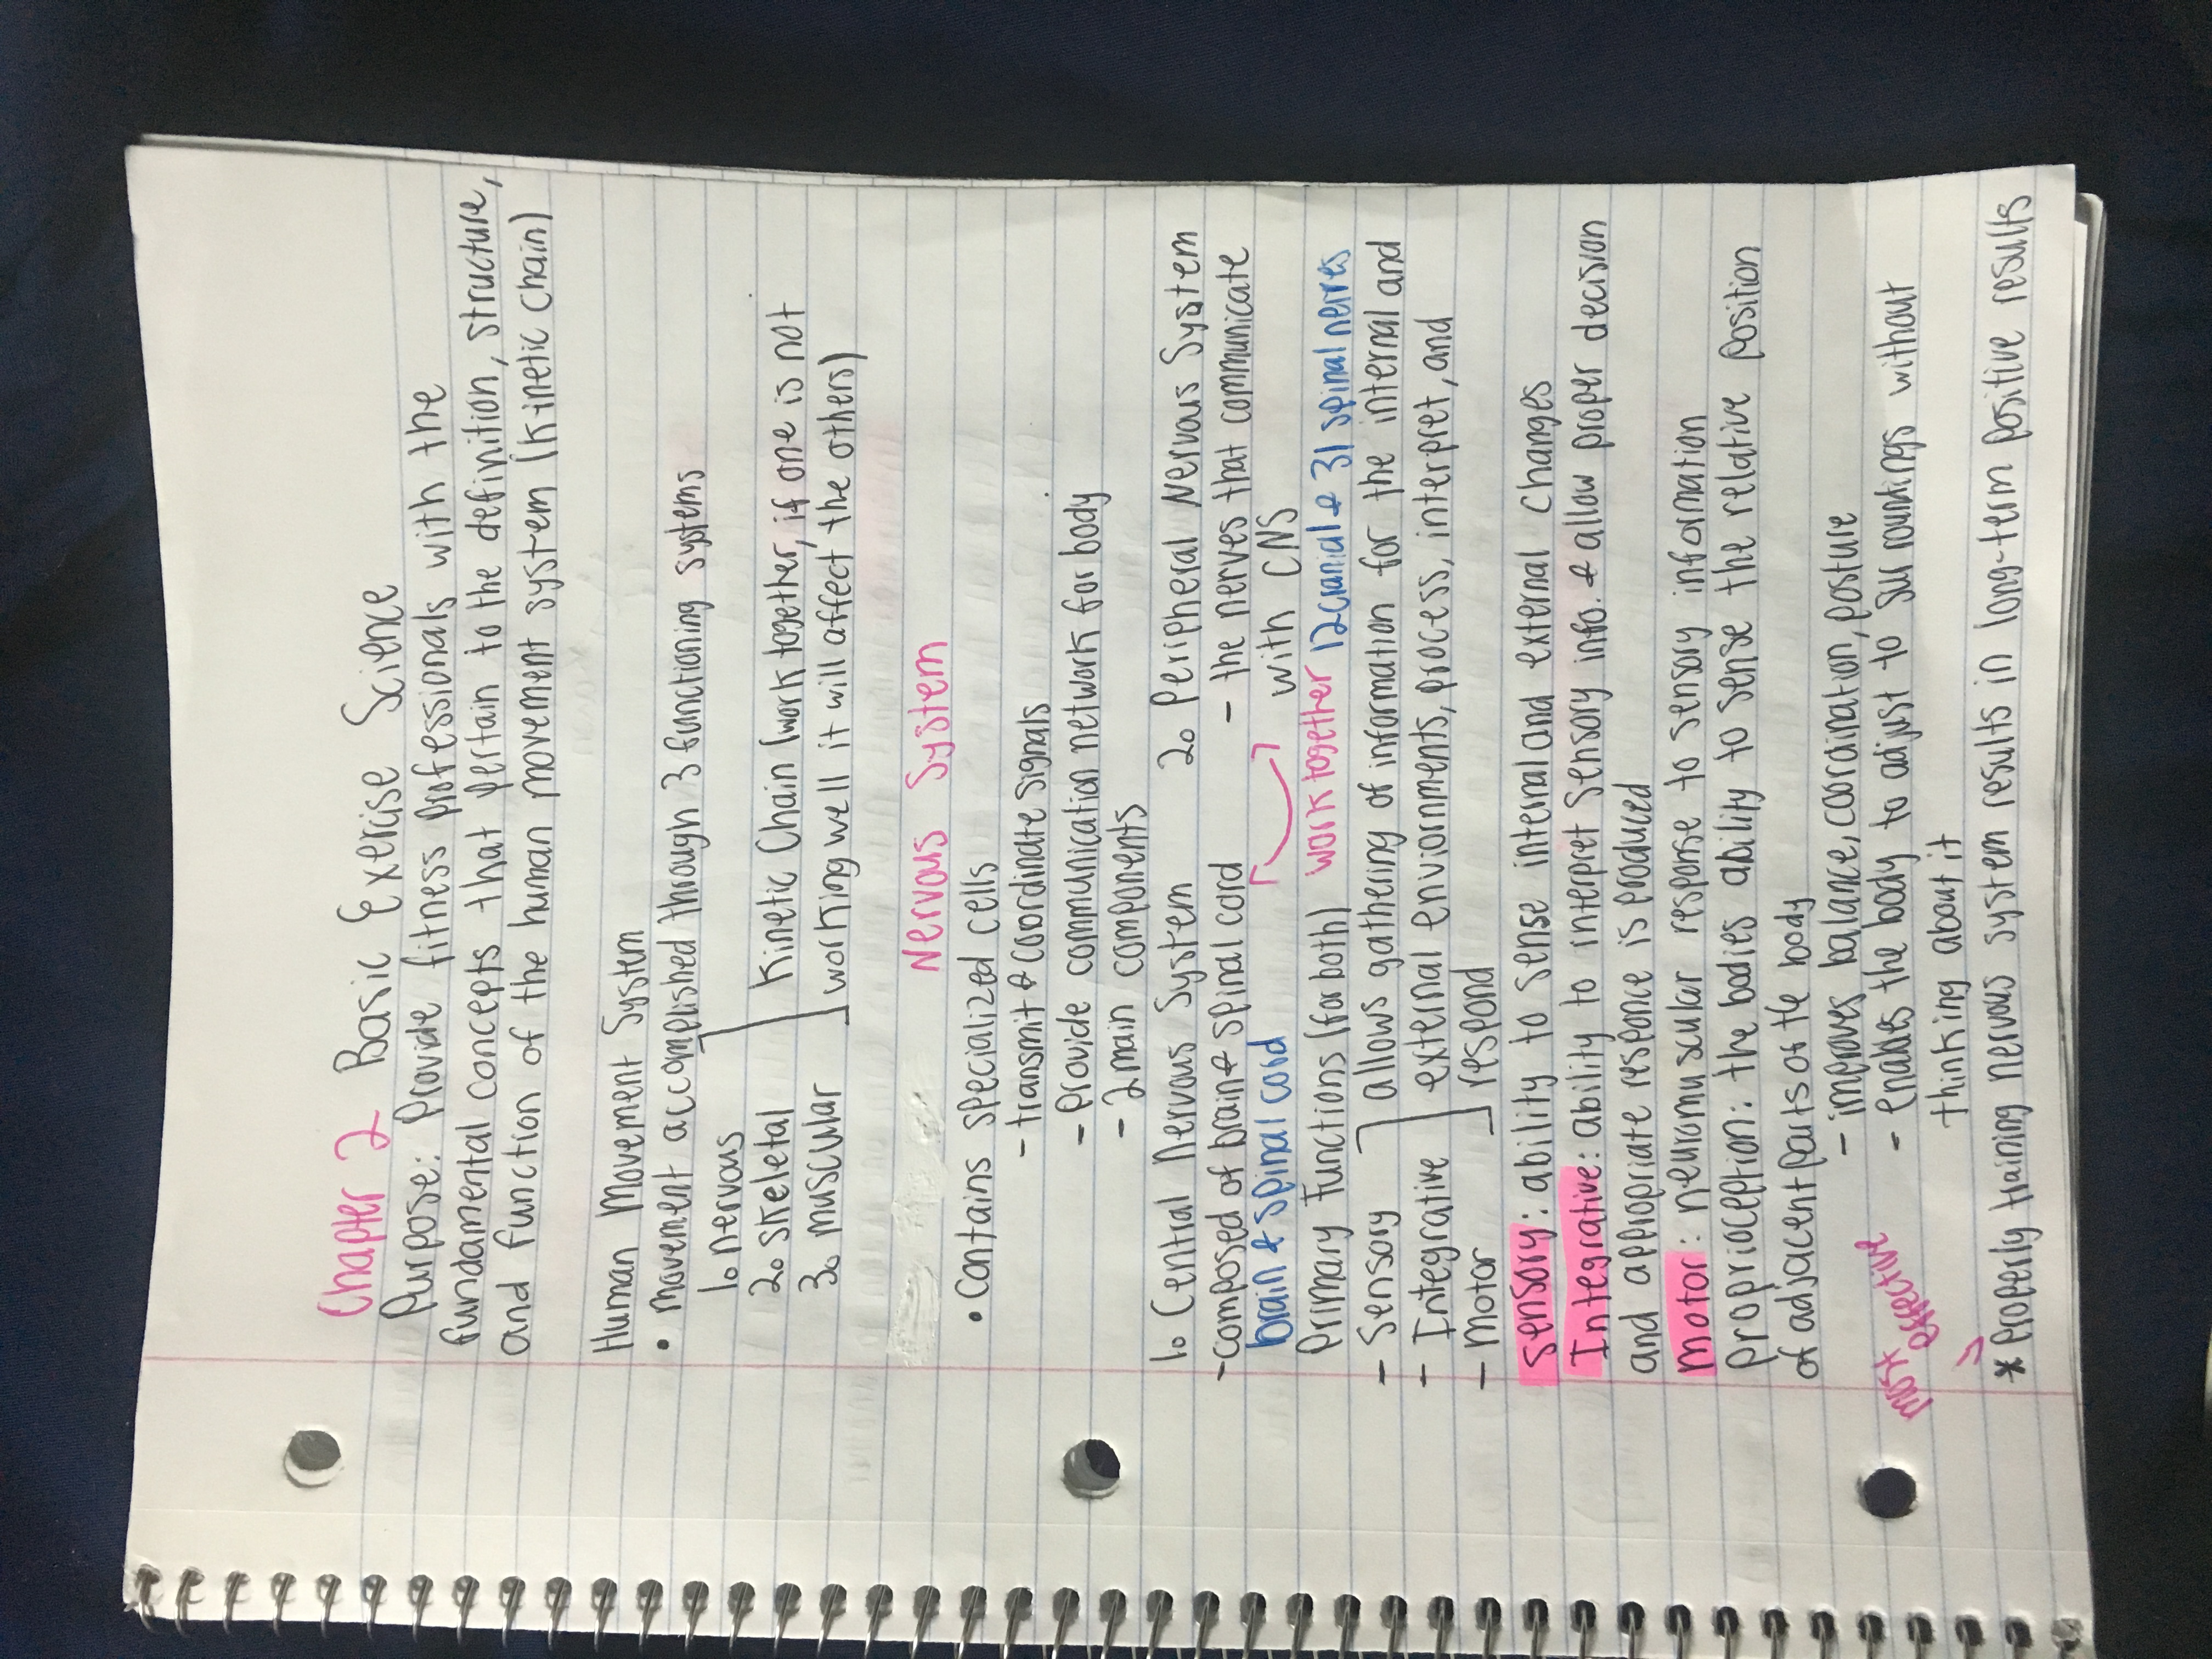 Chapter 2 Basic Exercise Science
Purpose: Provide fitness professionals with the
fundamental concepts that pertain to the definition, structure,
and function of the human movement system (kinetic chain)
Human Movement System
• movement accomplished through 3 functioning systems
1. nervous
2. skeletal Kinetic Chain (work together, if one is not
3. muscular working well it will affect the others)
Nervous System
• Contains specialized cells
- transmit & coordinate signals
- Provide communication network for body
- 2 main components
1. Central Nervous System 2. Peripheral Nervous System
- composed of brain & spinal cord - the nerves that communicate
brain & spinal cord with CNS
Primary Functions (for both) work together 12 cranial & 31 spinal nerves
- Sensory allows gathering of information for the internal and
- Integrative external enviornments, process, interpret, and
- Motor respond
Sensory: ability to sense internal and external changes
Integrative: ability to interpret sensory info. & allow proper decision
and appropriate responce is produced
Motor: neuromuscular response to sensory information
Proprioception: the bodies ability to sense the relative position
of adjacent parts of the body
- improves balance, coordination, posture
- enables the body to adjust to surroundings without
thinking about it
most effective
* Properly training nervous system results in long-term positive results